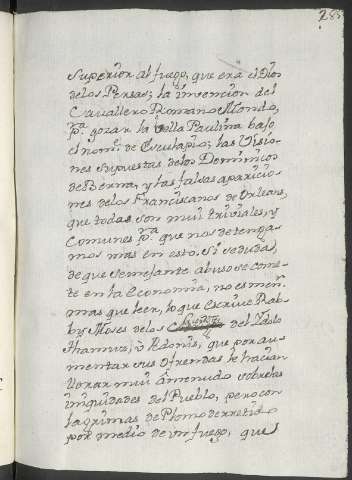 285
Superior al fuego, que era el Dios
de los Persas; la invencion del
Cavallero Romano Mondo,
pa. gozar la bella Paulina bajo
el nomᵉ. de Esculapio; las Visio-
nes supuestas delos Dominicos
de Berna, y las falsas aparicio-
nes delos Franciscanos de Orleans,
que todas son mui triviales, y
Comunes pa. que nos detenga-
mos mas en esto. Si se duda,
de que semejante abuso se come-
te en la Economia, no es menr.
mas que leer, lo que Escrive Rab-
by Moses delos del Ydolo
Thamuz, ò Adonis, que por au-
mentar sus ofrendas le hacian
llorar mui amenudo sobre las
iniquidades del Pueblo, pero con
lagrimas de Plomo derretido
por medio de un fuego, que